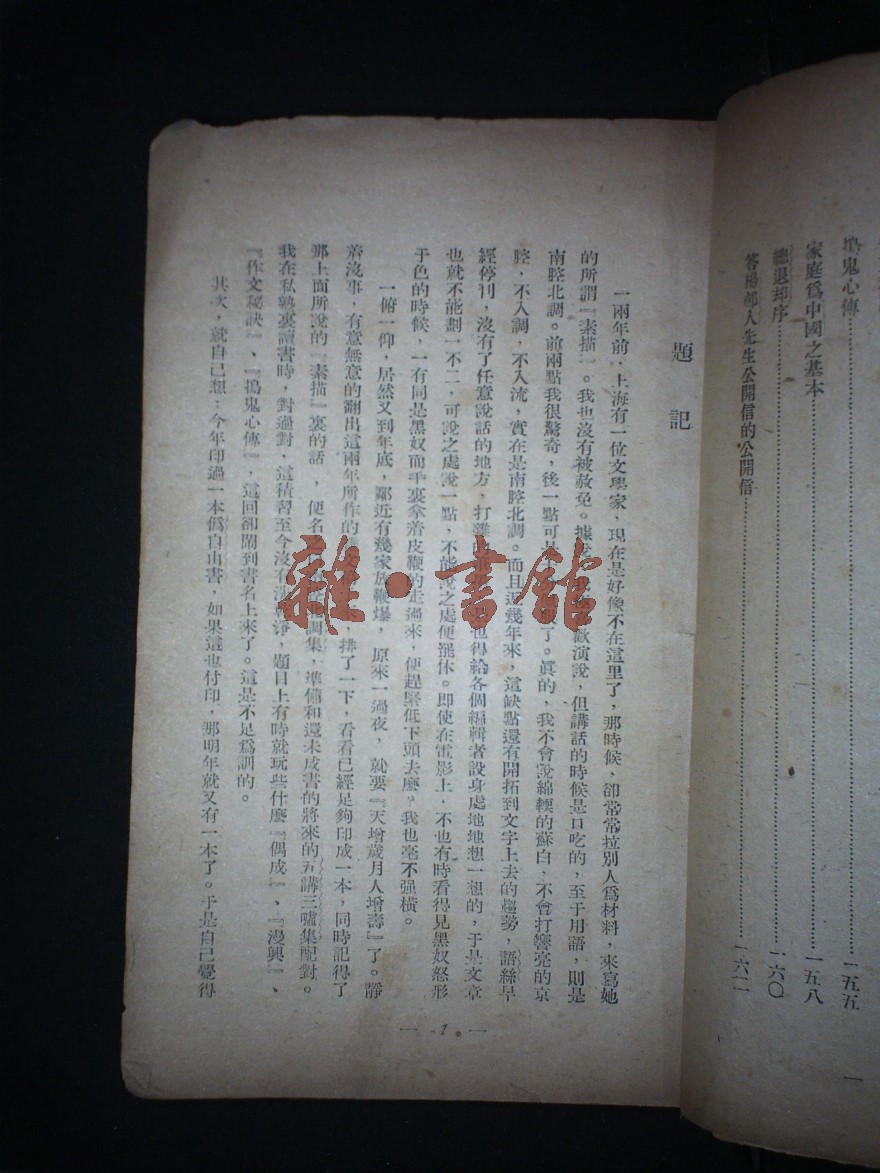 搗鬼心傳…………一五五
家庭爲中國之基本…………一五八
總退却序…………一六〇
答楊邨人先生公開信的公開信…………一六二
題記
一兩年前，上海有一位文學家，現在是好像不在這里了，那時候，卻常常拉別人爲材料，來寫她
的所謂『素描』。我也沒有被赦免。據說，我 歡演說，但講話的時候是口吃的，至于用語，則是
南腔北調。前兩點我很驚奇，後一點可 了。眞的，我不會說綿輭的蘇白，不會打響亮的京
腔，不入調，不入流，實在是南腔北調。而且近幾年來，這缺點還有開拓到文字上去的趨勢，語絲早
經停刊，沒有了任意說話的地方，打雜的 也得給各個編輯者設身處地地想一想的，于是文章
也就不能劃一不二，可說之處說一點，不能說之處便罷休。即使在電影上，不也有時看得見黑奴怒形
于色的時候，一有同是黑奴而手裏拿着皮鞭的走過來，便趕緊低下頭去麽？我也毫不强橫。
一俯一仰，居然又到年底，鄰近有幾家放鞭爆，原來一過夜，就要『天增歲月人增壽』了。靜
着沒事，有意無意的翻出這兩年所作的 ，排了一下，看看已經足夠印成一本，同時記得了
那上面所說的『素描』裏的話，便名之 調集，準備和還未成書的將來的五講三噓集配對。
我在私塾裏讀書時，對過對，這積習至今沒有 淨，題目上有時就玩些什麽『偶成』、『漫興』、
『作文秘訣』、『搗鬼心傳』，這回卻鬧到書名上來了。這是不足爲訓的。
其次，就自己想：今年印過一本僞自由書，如果這也付印，那明年就又有一本了。于是自己覺得
— 1 —
一
雜·書館